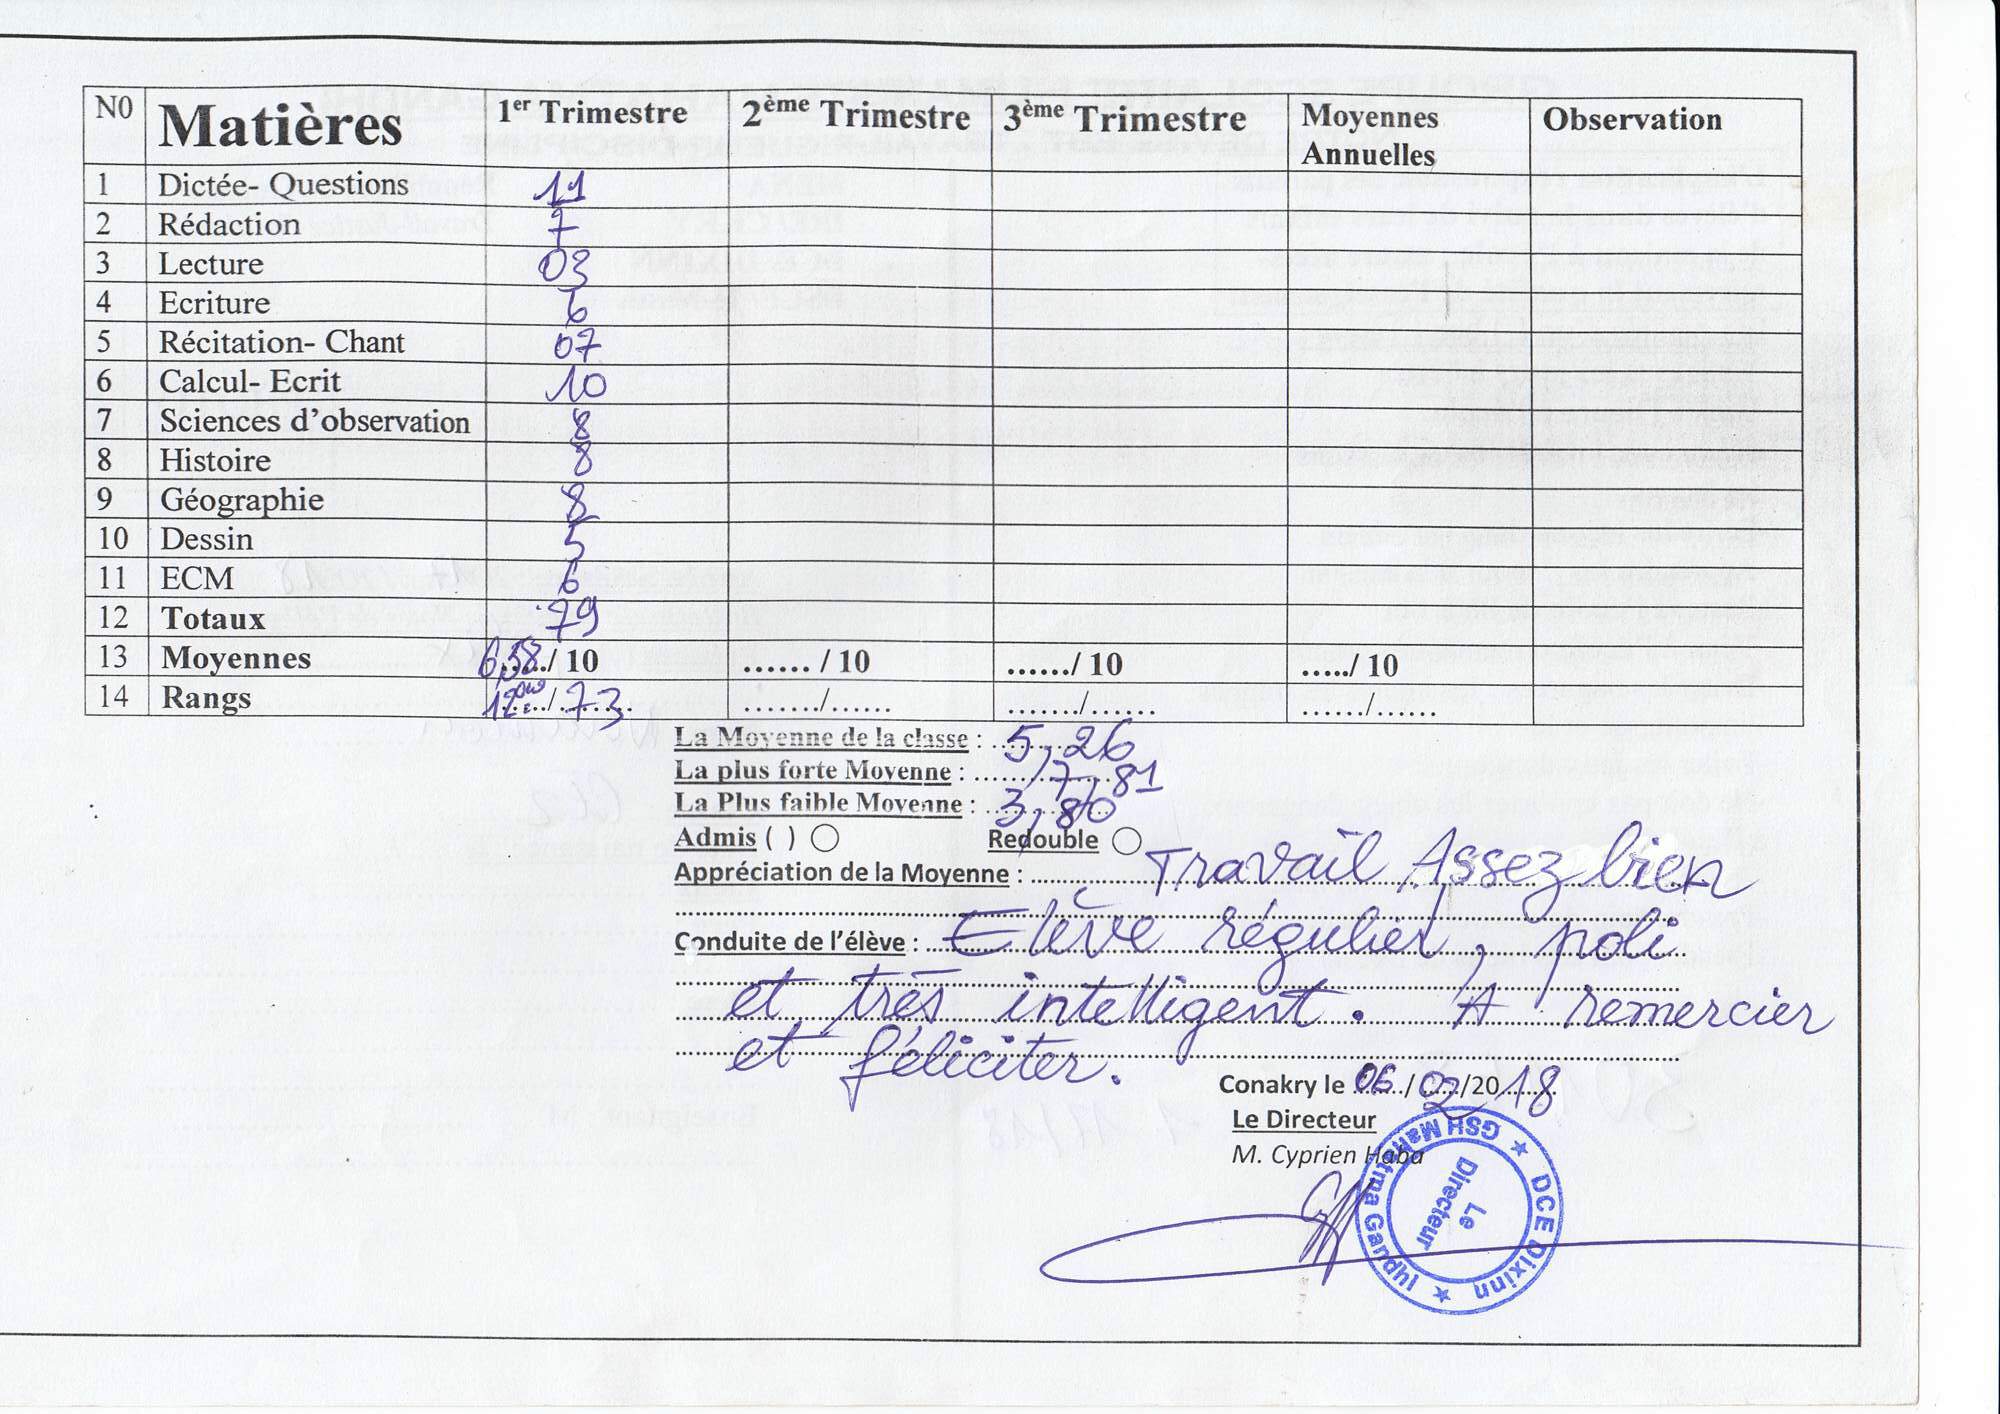 N0 Matières 1er Trimestre 2ème Trimestre 3ème Trimestre Moyennes Annuelles Observation
1 Dictée- Questions 11
2 Rédaction 7
3 Lecture 03
4 Ecriture 6
5 Récitation- Chant 07
6 Calcul- Ecrit 10
7 Sciences d'observation 8
8 Histoire 8
9 Géographie 8
10 Dessin 5
11 ECM 6
12 Totaux 79
13 Moyennes 6,58/ 10 ...... / 10 ....../ 10 ...../ 10
14 Rangs 12ème/73 ......../...... ......./...... ....../......
La Moyenne de la classe : 5,26
La plus forte Moyenne : 7,81
La Plus faible Moyenne : 3,80
Admis ( ) ◯ Redouble ◯
Appréciation de la Moyenne : Travail Assez bien
Conduite de l'élève : Elève régulier, poli
et très intelligent. A remercier
et féliciter.
Conakry le 06/02/2018
Le Directeur
M. Cyprien Haba
GSH Mahatma Gandhi ★ DCE Dixinn ★
Le
Directeur